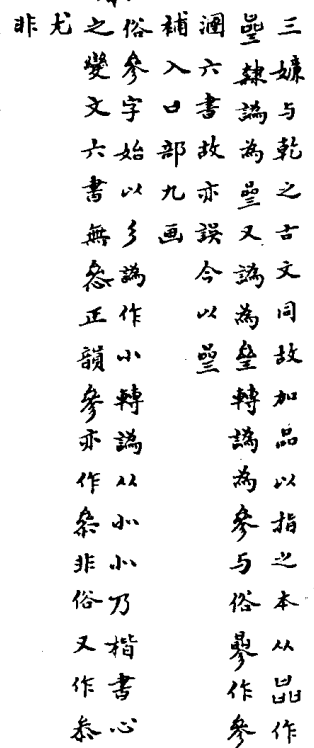 三嫌与乾之古文同故加品以指之本从作
隸譌為又譌為轉譌為參与俗作參
溷六書故亦誤今以
補入口部九画
俗參字始以彡譌作小轉譌从㣺㣺乃楷書心
之變文六書無正韻參亦作叅非俗又作
尤
非